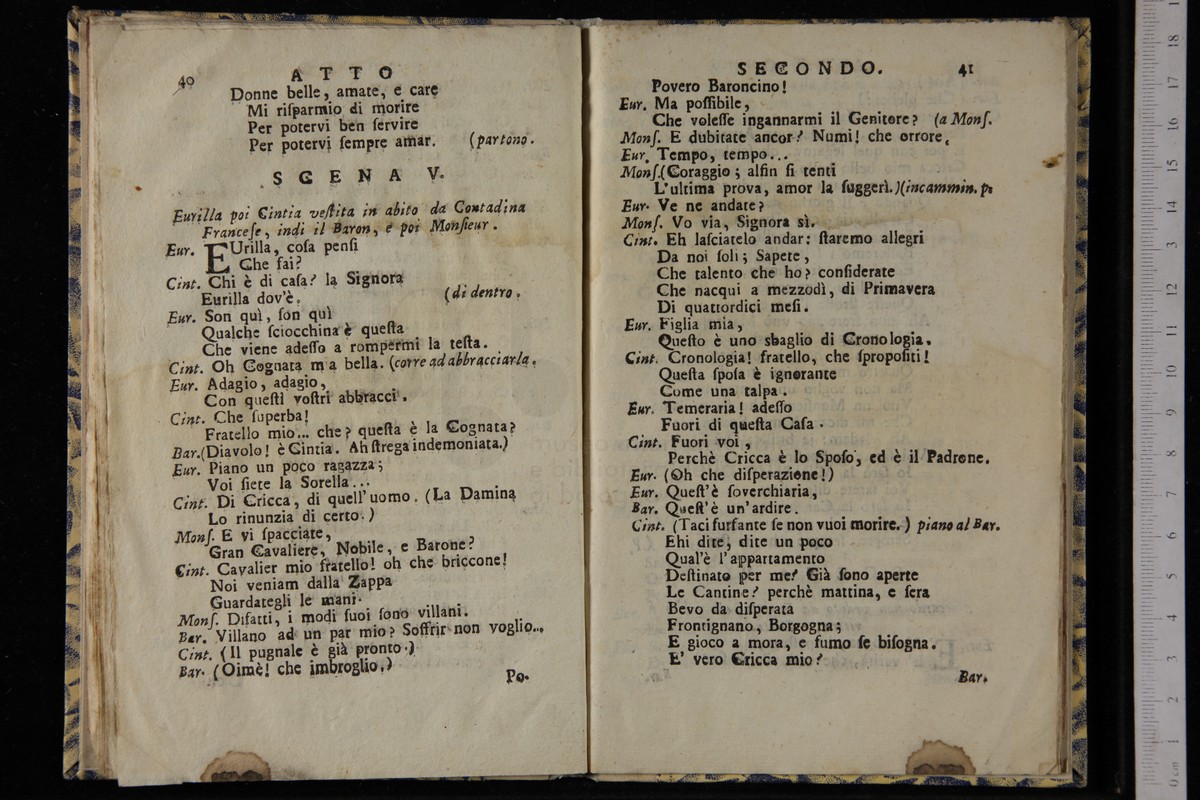 40
ATTO
Donne belle, amate, e care
Mi riſparmio di morire
Per potervi ben ſervire
Per potervi ſempre amar. (partono.
SCENA V.
Eurilla poi Cintia veſtita in abito da Contadina
Franceſe, indi il Baron, e poi Monſieur.
Eur. EUrilla, coſa penſi
Che fai?
Cint. Chi è di caſa? la Signora
Eurilla dov'è. (di dentro.
Eur. Son quì, ſon quì
Qualche ſciocchina è queſta
Che viene adeſſo a rompermi la teſta.
Cint. Oh Cognata mia bella. (corre ad abbracciarla.
Eur. Adagio, adagio,
Con queſti voſtri abbracci.
Cint. Che ſuperba!
Fratello mio... che? queſta è la Cognata?
Bar. (Diavolo! è Cintia. Ah ſtrega indemoniata.)
Eur. Piano un poco ragazza;
Voi ſiete la Sorella...
Cint. Di Cricca, di quell'uomo. (La Damina
Lo rinunzia di certo.)
Monſ. E vi ſpacciate,
Gran Cavaliere, Nobile, e Barone?
Cint. Cavalier mio fratello! oh che briccone!
Noi veniam dalla Zappa
Guardategli le mani.
Monſ. Difatti, i modi ſuoi ſono villani.
Bar. Villano ad un par mio? Soffrir non voglio...
Cint. (Il pugnale è già pronto.)
Bar. (Oimè! che imbroglio.)
Po.
SECONDO.
41
Povero Baroncino!
Eur. Ma poſſibile,
Che voleſſe ingannarmi il Genitore? (a Monſ.
Monſ. E dubitate ancor? Numi! che orrore.
Eur. Tempo, tempo...
Monſ. (Coraggio; alfin ſi tenti
L'ultima prova, amor la ſuggerì.)(incammin.
Eur. Ve ne andate?
Monſ. Vo via, Signora sì.
Cint. Eh laſciatelo andar: ſtaremo allegri
Da noi ſoli; Sapete,
Che talento che ho? conſiderate
Che nacqui a mezzodì, di Primavera
Di quattordici meſi.
Eur. Figlia mia,
Queſto è uno sbaglio di Cronologia.
Cint. Cronologia! fratello, che ſpropoſiti!
Queſta ſpoſa è ignorante
Come una talpa.
Eur. Temeraria! adeſſo
Fuori di queſta Caſa.
Cint. Fuori voi,
Perchè Cricca è lo Spoſo, ed è il Padrone.
Eur. (Oh che diſperazione!)
Eur. Queſt'è ſoverchiaria,
Bar. Queſt'è un'ardire.
Cint. (Taci furfante ſe non vuoi morire.) piano al Bar.
Ehi dite, dite un poco
Qual'è l'appartamento
Deſtinato per me? Già ſono aperte
Le Cantine? perchè mattina, e ſera
Bevo da diſperata
Frontignano, Borgogna;
E gioco a mora, e fumo ſe biſogna.
E' vero Cricca mio?
Bar.